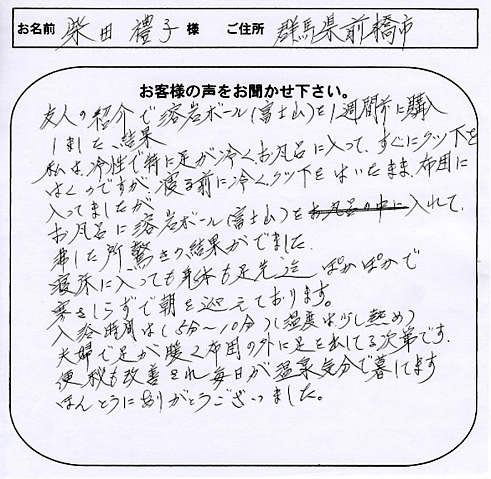 お名前 柴田 禮子 様 ご住所 群馬県前橋市
お客様の声をお聞かせ下さい。
友人の紹介で溶岩ボール(富士山)を1週間前に購入
しました、結果
私は、冷性で特に足が冷くお風呂に入って、すぐにクツ下を
はくのですが、寝る前に冷くクツ下をはいたまま、布団に
入ってましたが
お風呂に溶岩ボール(富士山)をお風呂の中に入れて、
沸した所驚きの結果がでました.
寝床に入っても身体も足先迄ぽかぽかで
寒さしらずで朝を迎えております。
入浴時間は(5分〜10分)(温度は少し熱め)
夫婦で足が暖く布団の外に足を出してる次第です.
便秘も改善され毎日が温泉気分で暮してます
ほんとうにありがとうございました。